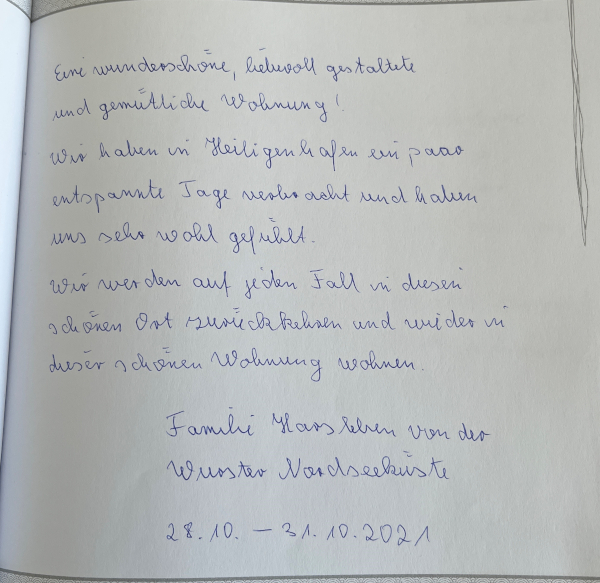 Eine wunderschöne, liebevoll gestaltete
und gemütliche Wohnung!
Wir haben in Heiligenhafen ein paar
entspannte Tage verbracht und haben
uns sehr wohl gefühlt.
Wir werden auf jeden Fall in diesen
schönen Ort zurückkehren und wieder in
dieser schönen Wohnung wohnen.
Familie Harsleben von der
Wurster Nordseeküste
28.10. – 31.10.2021